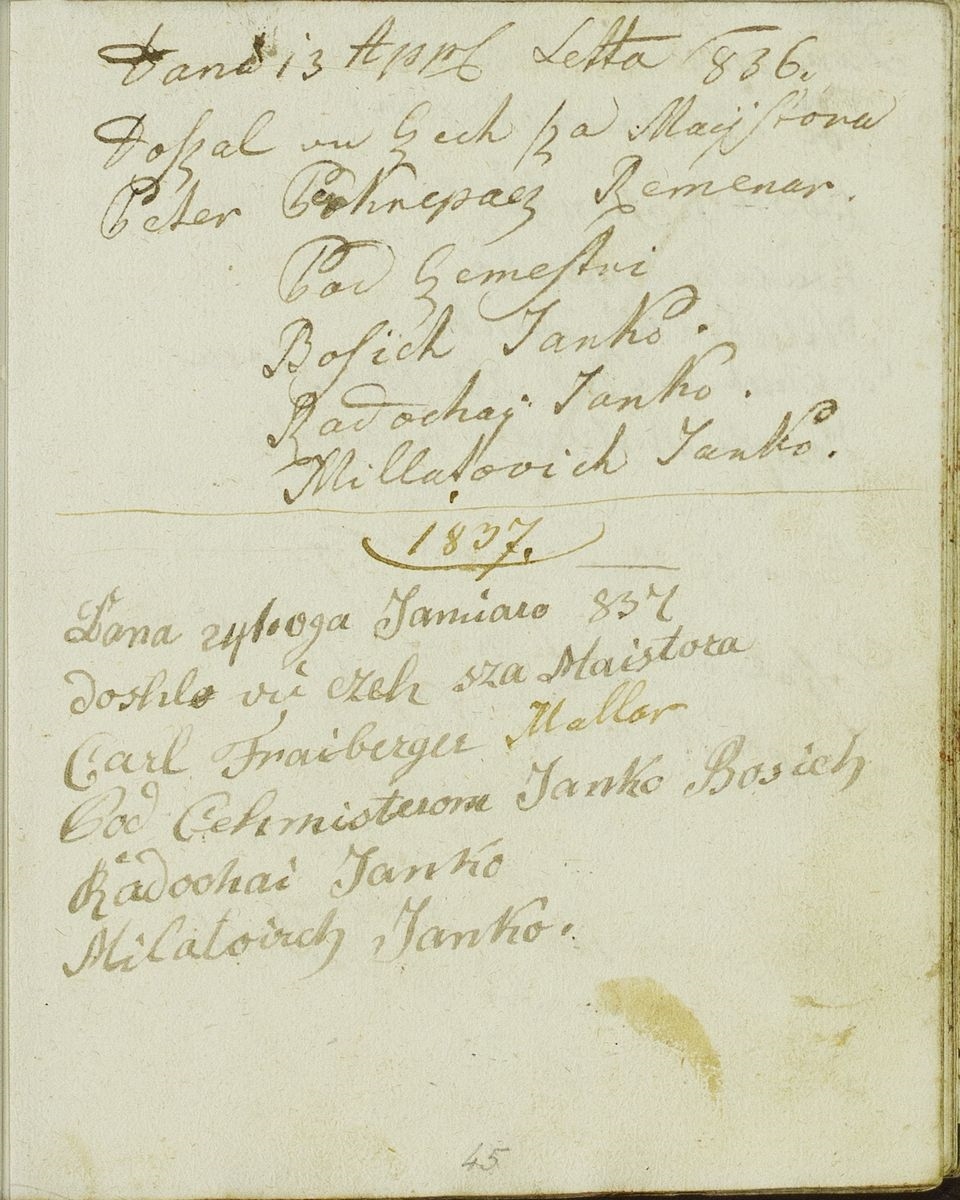 Dana 13 Appril Letta 836.
Doszal vu Czech sza Maystora
Peter Remenar.
Pod Czemestri
Bosich Janko.
Radochaj Janko.
Millatovich Janko.
1837.
Dana Januaro 837
doshlo vu czeh sza Maistora
Carl Fraiberger Mallar
Pod Cehmisterom Janko Bosich
Radochai Janko
Milatoirch Janko.
45